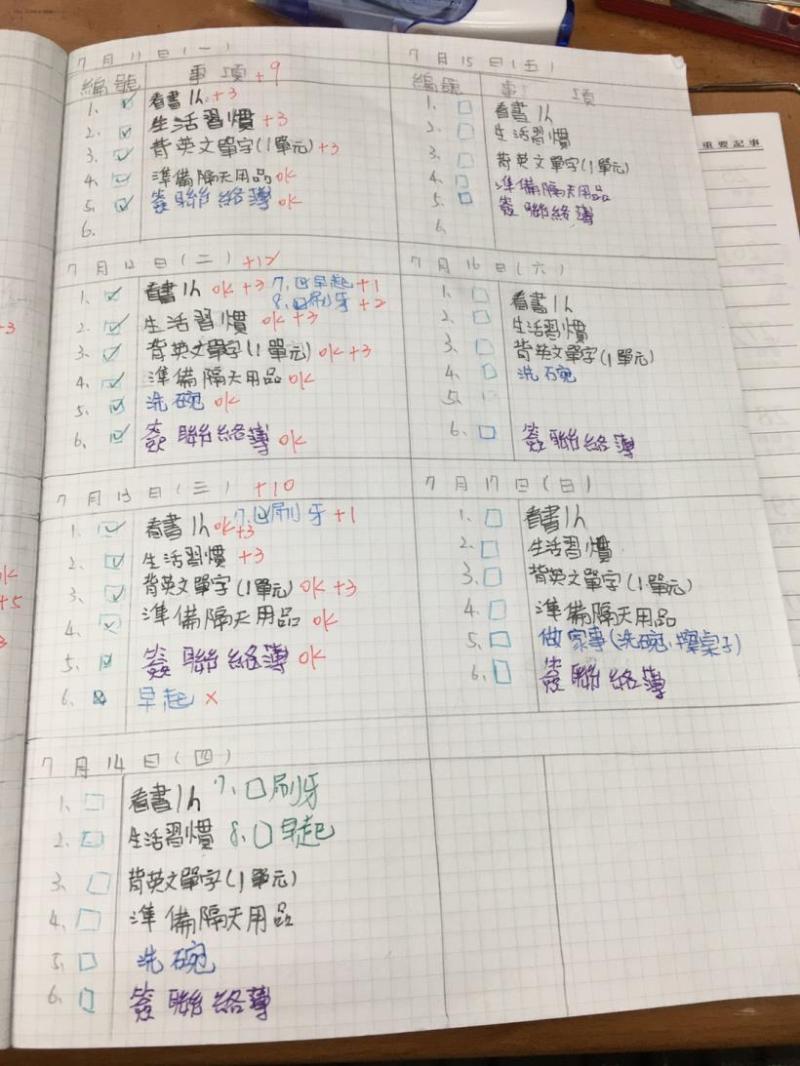 7月11日(一)
編號 事項 +9
1. 看書1h +3
2. 生活習慣 +3
3. 背英文單字(1單元) +3
4. 準備隔天用品 ok
5. 簽聯絡簿 ok
6.
7月12日(二) +12
1. 看書1h ok +3 7. 早起 +1
8. 刷牙 +2
2. 生活習慣 ok +3
3. 背英文單字(1單元) ok +3
4. 準備隔天用品 ok
5. 洗碗 ok
6. 簽聯絡簿 ok
7月13日(三) +10
1. 看書1h ok +3 7. 刷牙 +1
2. 生活習慣 +3
3. 背英文單字(1單元) ok +3
4. 準備隔天用品 ok
5. 簽聯絡簿 ok
6. 早起 x
7月14日(四)
1. 看書1h 7. 刷牙
2. 生活習慣 8. 早起
3. 背英文單字(1單元)
4. 準備隔天用品
5. 洗碗
6. 簽聯絡簿
7月15日(五)
編號 事項
1. 看書1h
2. 生活習慣
3. 背英文單字(1單元)
4. 準備隔天用品
5. 簽聯絡簿
6
7月16日(六)
1. 看書1h
2. 生活習慣
3. 背英文單字(1單元)
4. 洗碗
5.
6. 簽聯絡簿
7月17日(日)
1. 看書1h
2. 生活習慣
3. 背英文單字(1單元)
4. 準備隔天用品
5. 做家事(洗碗、擦桌子)
6. 簽聯絡簿
重要記事
+3
ok
+5
3